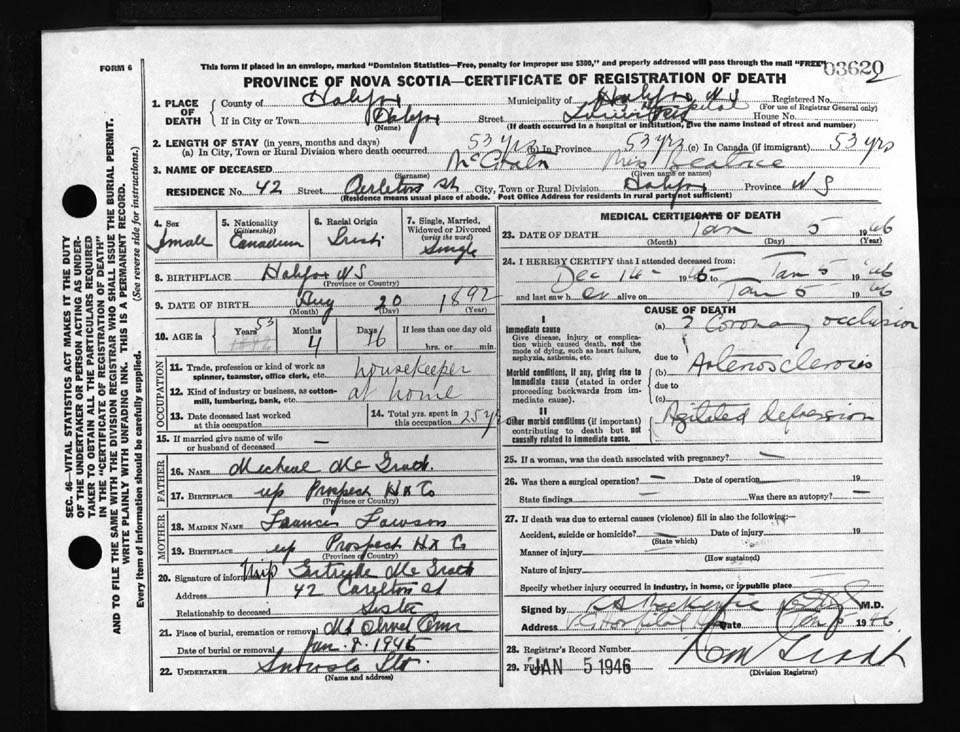 FORM 6
This form if placed in an envelope, marked "Dominion Statistics—Free, penalty for improper use $300," and properly addressed will pass through the mail "FREE"
03620
2
PROVINCE OF NOVA SCOTIA—CERTIFICATE OF REGISTRATION OF DEATH
1. PLACE OF DEATH County of Halifax Municipality of Halifax N S Registered No.
(For use of Registrar General only)
If in City or Town Halifax Street Hospital House No.
(Name) (If death occurred in a hospital or institution, give the name instead of street and number)
2. LENGTH OF STAY (in years, months and days)
(a) In City, Town or Rural Division where death occurred 53 yrs (b) In Province 53 yrs (c) In Canada (if immigrant) 53 yrs
3. NAME OF DECEASED McGrath Miss Beatrice
(Surname) (Given name or names)
RESIDENCE No. 42 Street Carleton St City, Town or Rural Division Halifax Province N S
(Residence means usual place of abode. Post Office Address for residents in rural parts not sufficient)
4. Sex Female
5. Nationality Canadian
6. Racial Origin Irish
7. Single, Married, Widowed or Divorced (write the word) Single
8. BIRTHPLACE Halifax N S
(Province or Country)
9. DATE OF BIRTH Aug 20 1892
(Month) (Day) (Year)
10. AGE in Years 53 Months 4 Days 16 If less than one day old
hrs. or min.
OCCUPATION
11. Trade, profession or kind of work as spinner, teamster, office clerk, etc. housekeeper
12. Kind of industry or business, as cotton-mill, lumbering, bank, etc. at home
13. Date deceased last worked at this occupation
14. Total yrs. spent in this occupation 25 yrs
15. If married give name of wife or husband of deceased —
FATHER
16. NAME Micheal Mc Grath
17. BIRTHPLACE up Prospect Hx Co
(Province or Country)
MOTHER
18. MAIDEN NAME Frances Lawson
19. BIRTHPLACE up Prospect Hx Co
(Province or Country)
20. Signature of informant Gertrude Mc Grath
Address 42 Carelton St
Relationship to deceased Sister
21. Place of burial, cremation or removal Mt Olivet Cem
Date of burial or removal Jan. 8. 1946
22. UNDERTAKER Snows Ltd.
(Name and address)
MEDICAL CERTIFICATE OF DEATH
23. DATE OF DEATH Jan 5 1946
(Month) (Day) (Year)
24. I HEREBY CERTIFY that I attended deceased from:
Dec 14 - 1945 to Jan 5 1946
and last saw her alive on Jan 5 1946
CAUSE OF DEATH
I
Immediate cause
Give disease, injury or complication which caused death, not the mode of dying, such as heart failure, asphyxia, asthenia, etc.
(a) ? Coronary occlusion
due to
Morbid conditions, if any, giving rise to immediate cause (stated in order proceeding backwards from immediate cause).
(b) Arteriosclerosis
due to
(c)
II
Other morbid conditions (if important) contributing to death but not causally related to immediate cause.
Agitated depression
25. If a woman, was the death associated with pregnancy? —
26. Was there a surgical operation? — Date of operation — 19
State findings — Was there an autopsy? —
27. If death was due to external causes (violence) fill in also the following:—
Accident, suicide or homicide? — Date of injury 19
(State which)
Manner of injury
(How sustained)
Nature of injury
Specify whether injury occurred in industry, in home, or in public place
Signed by M.D.
Address V.G. Hospital Date Jan 5 1946
28. Registrar's Record Number
29. Filed JAN 5 1946
(Division Registrar)
SEC. 46—VITAL STATISTICS ACT MAKES IT THE DUTY
OF THE UNDERTAKER OR PERSON ACTING AS UNDER-
TAKER TO OBTAIN ALL THE PARTICULARS REQUIRED
IN THE "CERTIFICATE OF REGISTRATION OF DEATH"
AND TO FILE THE SAME WITH THE DIVISION REGISTRAR WHO SHALL ISSUE THE BURIAL PERMIT.
WRITE PLAINLY WITH UNFADING INK. THIS IS A PERMANENT RECORD.
Every item of Information should be carefully supplied. (See reverse side for instructions.)